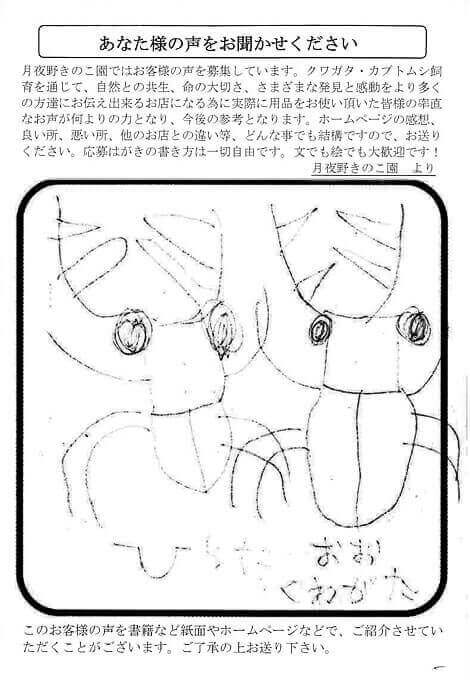 あなた様の声をお聞かせください
月夜野きのこ園ではお客様の声を募集しています。クワガタ・カブトムシ飼
育を通じて、自然との共生、命の大切さ、さまざまな発見と感動をより多く
の方達にお伝え出来るお店になる為に実際に用品をお使い頂いた皆様の率直
なお声が何よりの力となり、今後の参考となります。ホームページの感想、
良い所、悪い所、他のお店との違い等、どんな事でも結構ですので、お送り
ください。応募はがきの書き方は一切自由です。文でも絵でも大歓迎です！
月夜野きのこ園　より
おお
くわがた
このお客様の声を書籍など紙面やホームページなどで、ご紹介させてい
ただくことがございます。ご了承の上お送り下さい。